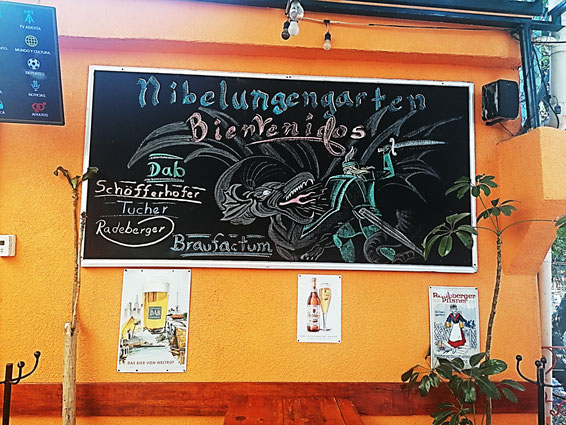 TV ABIERTA
MUNDO Y CULTURA
DEPORTES
NOTICIAS
ADULTOS
Nibelungengarten
Bienvenidos
Dab
Schöfferhofer
Tucher
Radeberger
Braufactum
DAB
DAS BIER VON WELTRUF
Radeberger
Pilsner